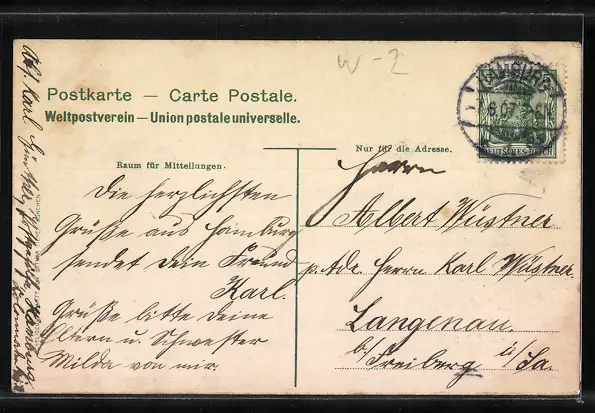 W-2
Postkarte — Carte Postale.
Weltpostverein — Union postale universelle.
Raum für Mitteilungen.
Nur für die Adresse.
HAMBURG
6.07
DEUTSCHES REICH
Die herzlichsten
Grüße aus Hamburg
sendet dein Freund
Karl.
Grüße bitte deine
Eltern u. Schwester
Milda von mir.
Herrn
Albert Wüstner
p. Adr. Herrn Karl Wüstner
Langenau
b/ Freiberg i/Sa.
Abs. Karl